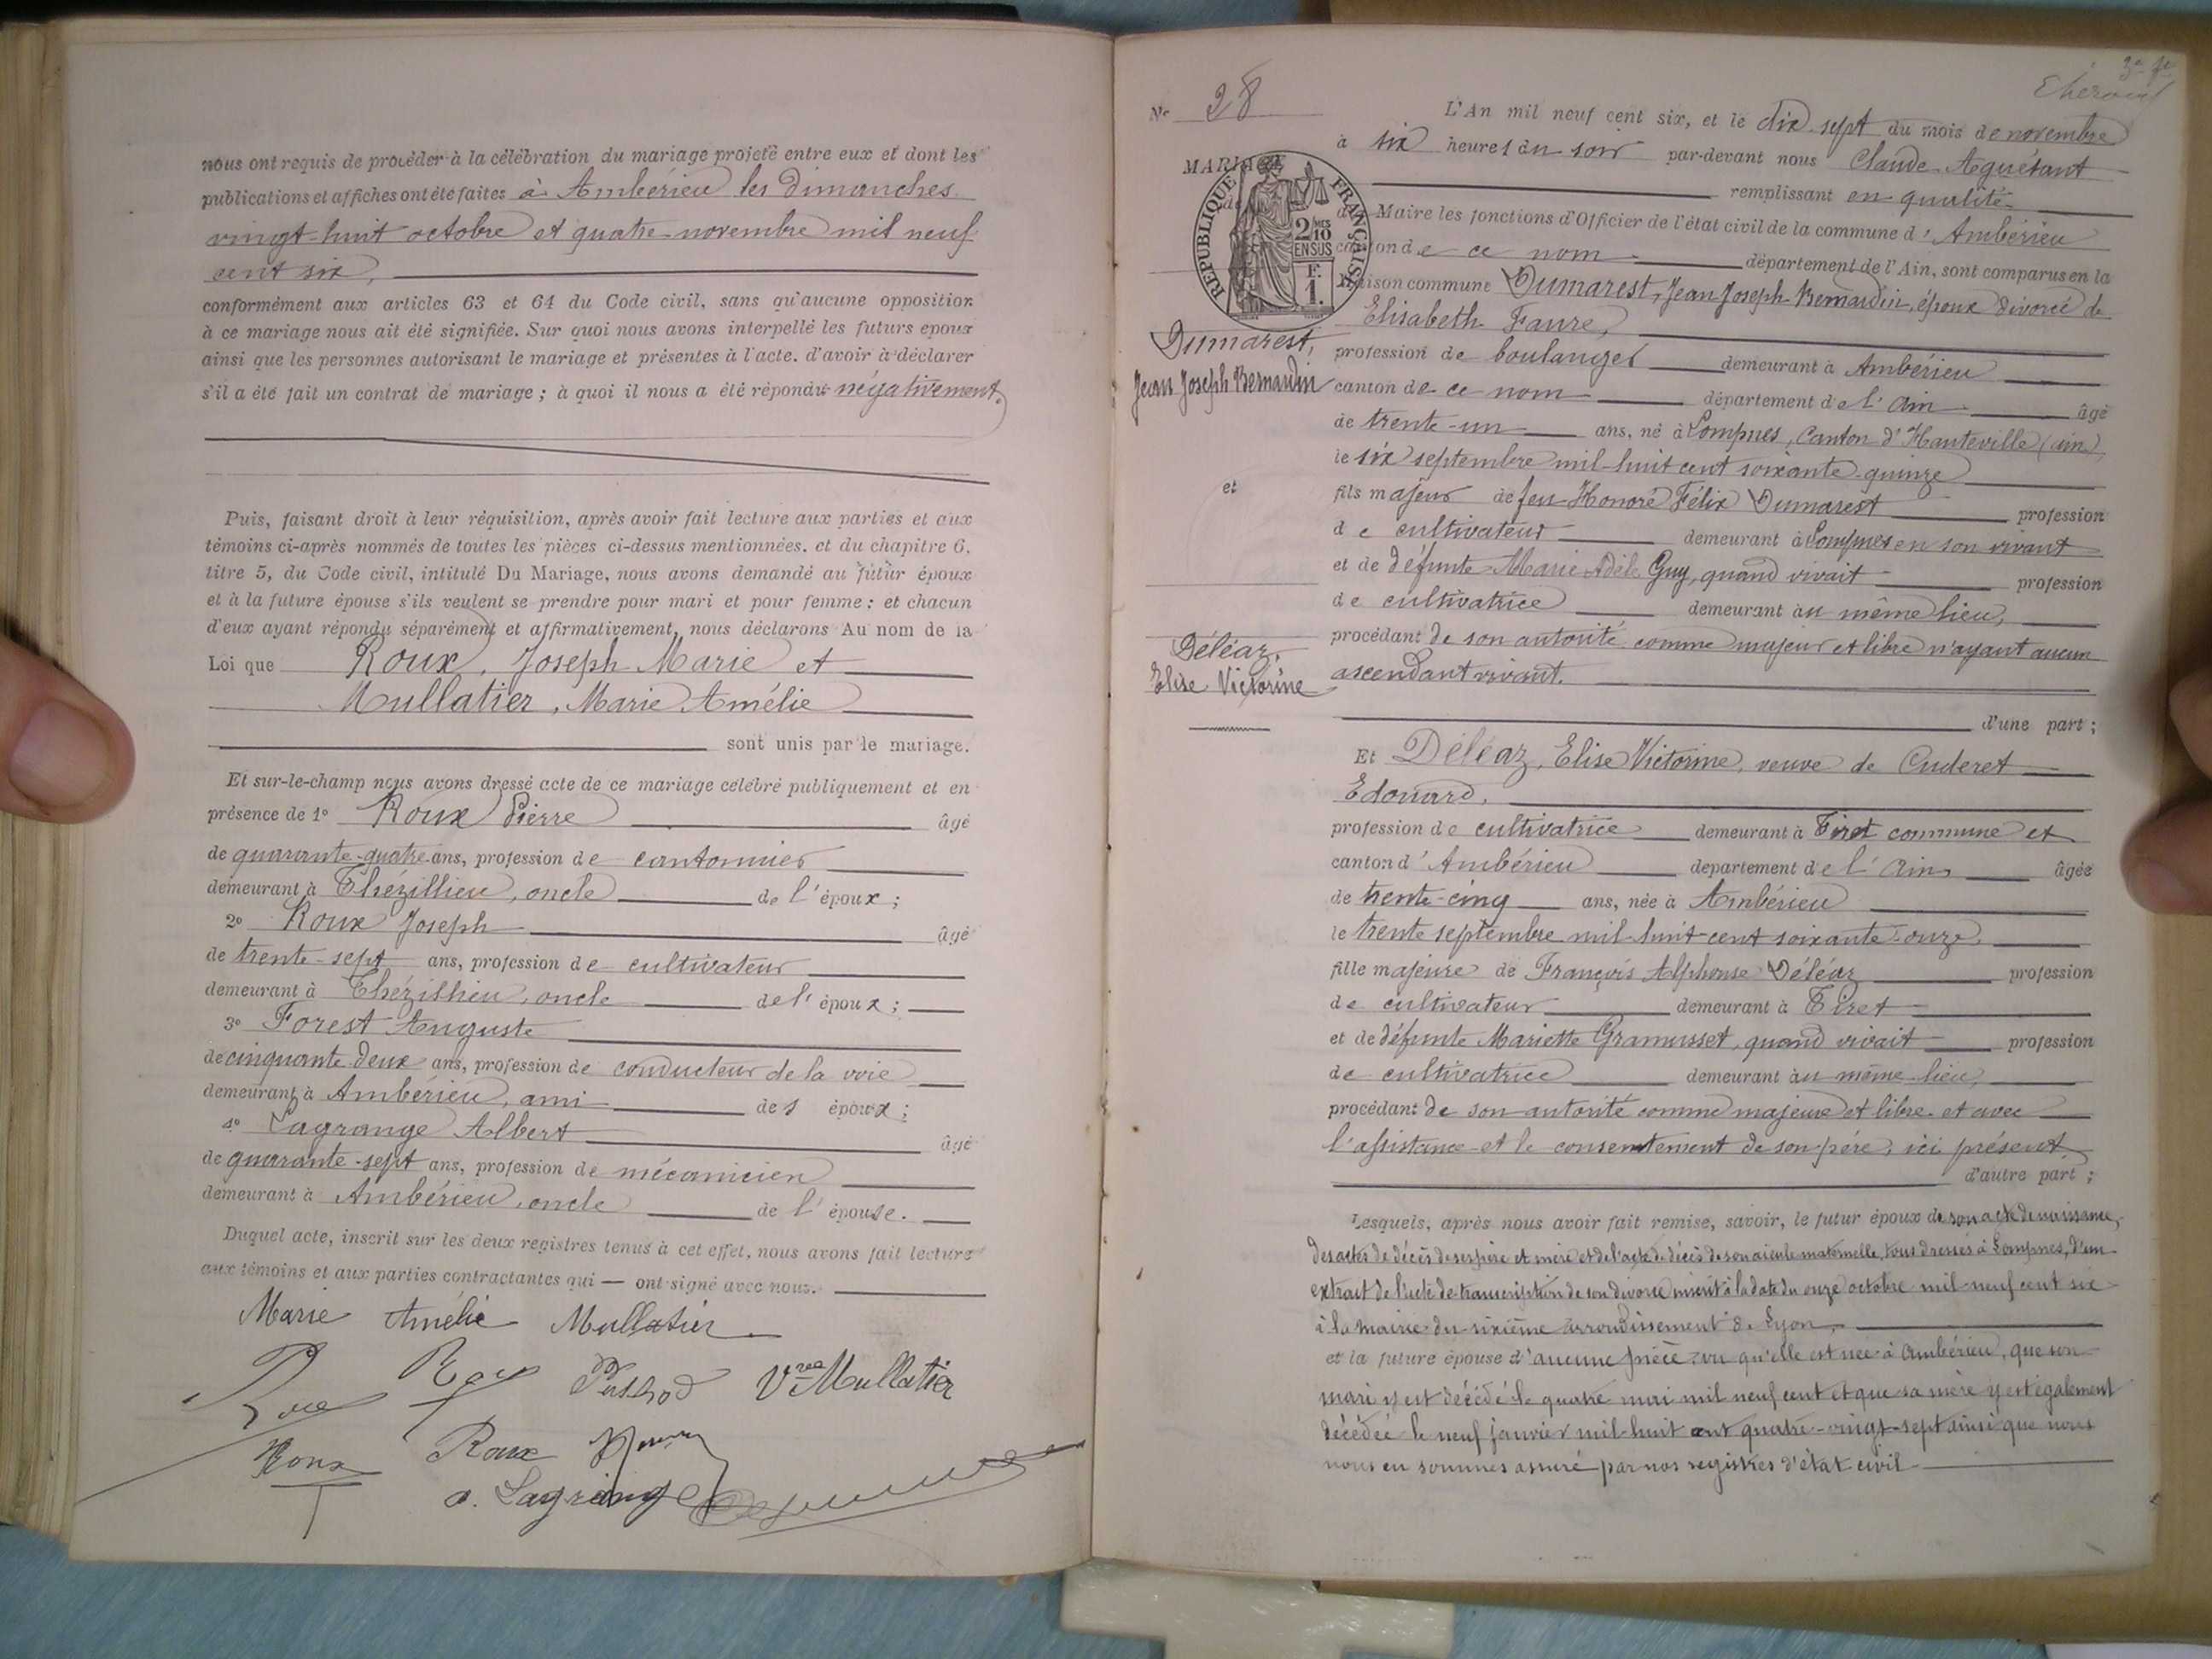 nous ont requis de procéder à la célébration du mariage projeté entre eux et dont les
publications et affiches ont été faites à Ambérieu les dimanches
vingt-huit octobre et quatre novembre mil neuf
cent six,
conformément aux articles 63 et 64 du Code civil, sans qu'aucune opposition
à ce mariage nous ait été signifiée. Sur quoi nous avons interpellé les futurs époux
ainsi que les personnes autorisant le mariage et présentes à l'acte. d'avoir à déclarer
s'il a été fait un contrat de mariage ; à quoi il nous a été répondu négativement.
Puis, faisant droit à leur réquisition, après avoir fait lecture aux parties et aux
témoins ci-après nommés de toutes les pièces ci-dessus mentionnées. et du chapitre 6,
titre 5, du Code civil, intitulé Du Mariage, nous avons demandé au futur époux
et à la future épouse s'ils veulent se prendre pour mari et pour femme ; et chacun
d'eux ayant répondu séparément et affirmativement, nous déclarons Au nom de la
Loi que Roux, Joseph Marie et
Mullatier, Marie Amélie
sont unis par le mariage.
Et sur-le-champ nous avons dressé acte de ce mariage célébré publiquement et en
présence de 1º Roux Pierre âgé
de quarante-quatre ans, profession de cantonnier
demeurant à Thézillieu, oncle de l'époux ;
2º Roux Joseph âgé
de trente-sept ans, profession de cultivateur
demeurant à Thézillieu, oncle de l'époux ;
3º Forest Auguste
de cinquante-deux ans, profession de conducteur de la voie
demeurant à Ambérieu, ami des époux ;
4º Lagrange Albert âgé
de quarante-sept ans, profession de mécanicien
demeurant à Ambérieu, oncle de l'épouse.
Duquel acte, inscrit sur les deux registres tenus à cet effet, nous avons fait lecture
aux témoins et aux parties contractantes qui — ont signé avec nous.
Marie Amélie Mullatier
Roux Vve Mullatier
Roux Roux
a. Lagrange
Nº 28
MARIAGE
REPUBLIQUE FRANÇAISE
2/10 EN SUS
F. 1.
Dumarest,
Jean Joseph Bernardin
et
Déléaz,
Elise Victorine
L'An mil neuf cent six, et le dix-sept du mois de novembre
à six heures du soir par-devant nous Claude Aguétant
remplissant en qualité
de Maire les fonctions d'Officier de l'état civil de la commune d'Ambérieu
canton de ce nom département de l'Ain, sont comparus en la
Maison commune Dumarest, Jean Joseph Bernardin, époux divorcé de
Elisabeth Faure,
profession de boulanger demeurant à Ambérieu
canton de ce nom département de l'Ain âgé
de trente-un ans, né à Lompnes, Canton d'Hauteville (ain)
le six septembre mil-huit cent soixante-quinze
fils majeur de feu Honoré Félix Dumarest profession
de cultivateur demeurant à Lompnes en son vivant
et de défunte Marie Adèle Guy, quand vivait profession
de cultivatrice demeurant au même lieu,
procédant de son autorité comme majeur et libre n'ayant aucun
ascendant vivant.
d'une part ;
Et Déléaz, Elise Victorine, veuve de Cuderet
Edouard,
profession de cultivatrice demeurant à Tiret commune et
canton d'Ambérieu département de l'Ain âgée
de trente-cinq ans, née à Ambérieu
le trente septembre mil-huit-cent soixante-onze,
fille majeure de François Alphonse Déléaz profession
de cultivateur demeurant à Tiret
et de défunte Mariette Gramusset, quand vivait profession
de cultivatrice demeurant au même lieu,
procédant de son autorité comme majeure et libre et avec
l'assistance et le consentement de son père, ici présent,
d'autre part ;
Lesquels, après nous avoir fait remise, savoir, le futur époux de son acte de naissance,
des actes de décès de ses père et mère et de l'acte de décès de son aieule maternelle, tous dressés à Lompnes, d'un
extrait de l'acte de transcription de son divorce inscrit à la date du onze octobre mil-neuf cent six
à la mairie du sixième arrondissement de Lyon,
et la future épouse d'aucune pièce vu qu'elle est née à Ambérieu, que son
mari y est décédé le quatre mai mil neuf cent et que sa mère y est également
décédée le neuf janvier mil-huit cent quatre-vingt-sept ainsi que nous
nous en sommes assuré par nos registres d'état civil